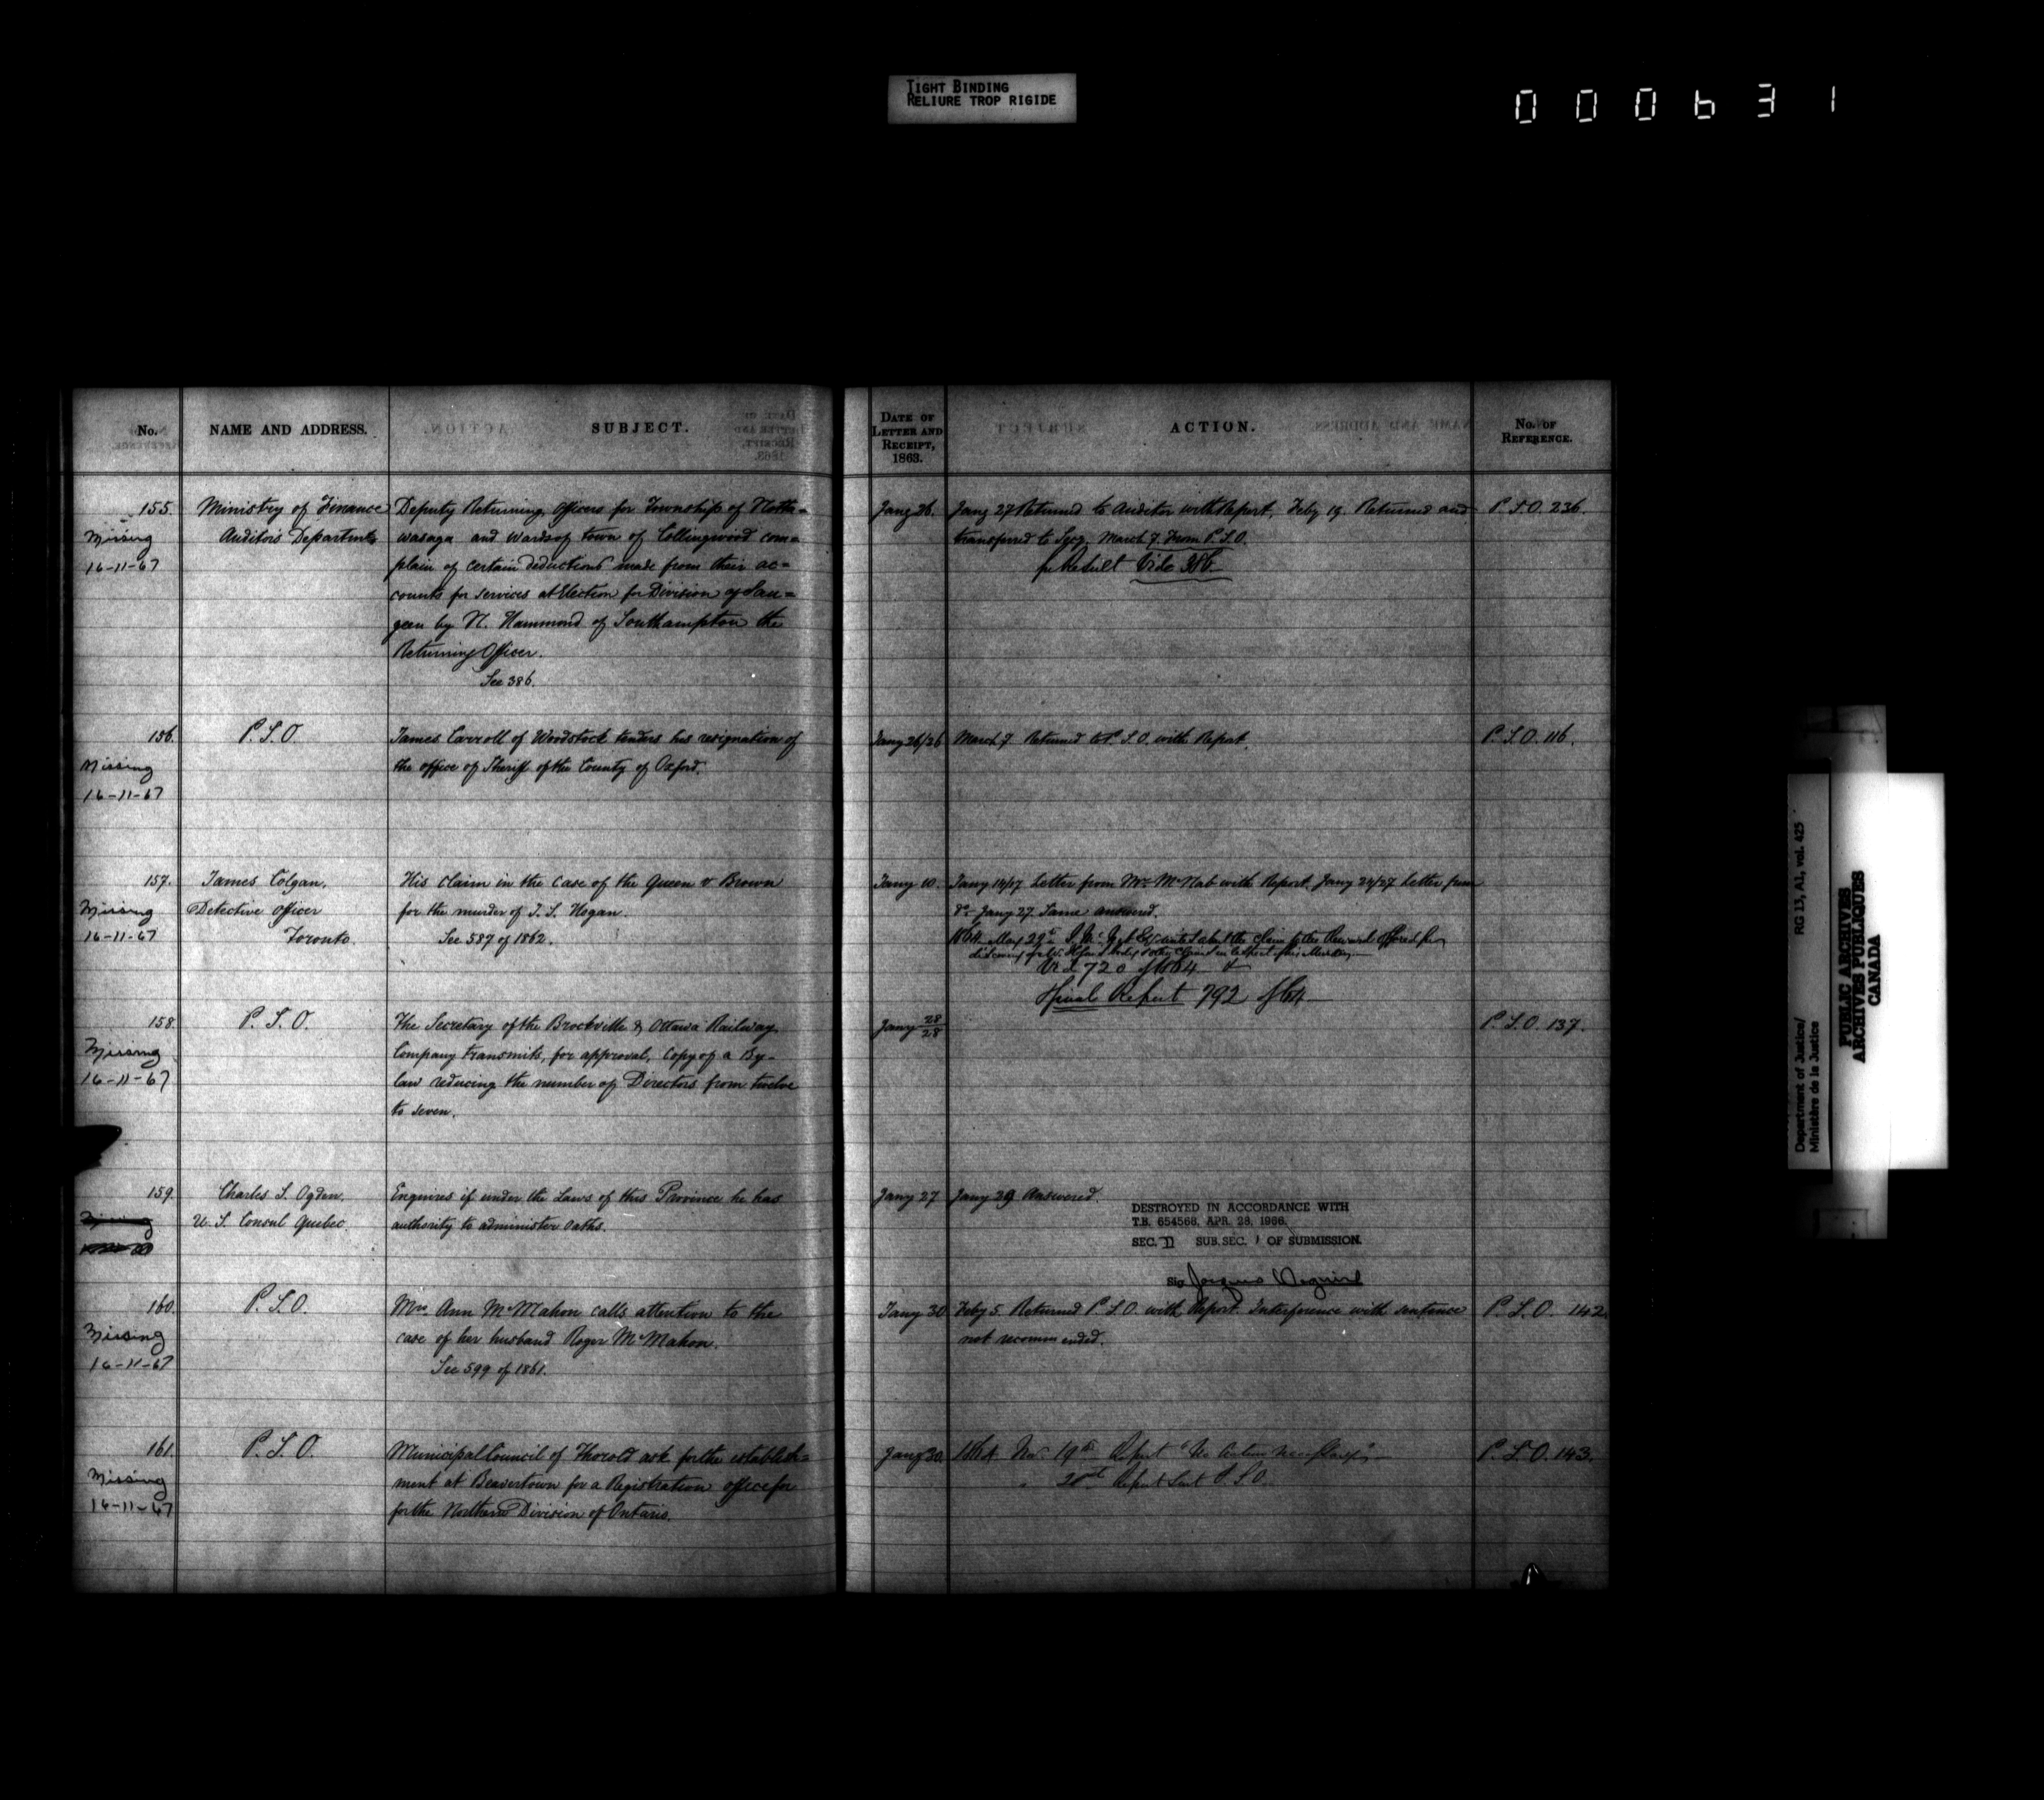 TIGHT BINDING
RELIURE TROP RIGIDE
000631
No. NAME AND ADDRESS. SUBJECT. DATE OF LETTER AND RECEIPT, 1863. ACTION. No. OF REFERENCE.
155. Ministry of Finance Deputy Returning Officers for Township of Notta= Jany 26. Jany 27 Returned to Auditor with Report. Feby 19. Returned and P.S.O. 236.
Missing Auditors Departmt wasaga and Wards of town of Collingwood com= transferred to Secy. March 7. From P.S.O.
16-11-67 plain of certain deductions made from their ac= for Result Vide 386.
counts for services at Election for Division of Sau=
geen by N. Hammond of Southampton the
Returning Officer.
See 386.
156. P.S.O. James Carroll of Woodstock tenders his resignation of Jany 26/26 March 7 Returned to P.S.O. with Report. P.S.O. 116.
Missing the office of Sheriff of the County of Oxford.
16-11-67
157. James Colgan, His claim in the case of the Queen v. Brown Jany 10. Jany 14/17 Letter from Mr. McNab with Report. Jany 24/27 Letter from
Missing Detective Officer for the murder of J. S. Hogan. do Jany 27. Same answered.
16-11-67 Toronto. See 587 of 1862. 1864 May 29th about the Claim for the Reward offered for
720 of 1864
Final Report 792 of 64
158. P.S.O. The Secretary of the Brockville & Ottawa Railway Jany 28/28 P.S.O. 137.
Missing Company transmits, for approval, copy of a By-
16-11-67 law reducing the number of Directors from twelve
to seven.
159. Charles S. Ogden. Enquires if under the Laws of this Province he has Jany 27 Jany 29 Answered.
U.S. Consul Quebec. authority to administer oaths.
DESTROYED IN ACCORDANCE WITH
T.B. 654566, APR. 28, 1966.
SEC. II SUB. SEC. 1 OF SUBMISSION.
SIG
160. P.S.O. Mrs. Ann McMahon calls attention to the Jany 30 Feby 5. Returned P.S.O. with Report. Interference with sentence P.S.O. 142.
Missing case of her husband Roger McMahon. not recommended.
16-11-67 See 599 of 1861.
161. P.S.O. Municipal Council of Thorold ask for the establish= Jany 30. 1864 19th Report "No action P.S.O. 143.
Missing ment at Beavertown for a Registration office for Report Sent P.S.O.
16-11-67 for the Northern Division of Ontario.
Department of Justice/ RG 13, A1, vol. 425
Ministère de la Justice
PUBLIC ARCHIVES
ARCHIVES PUBLIQUES
CANADA